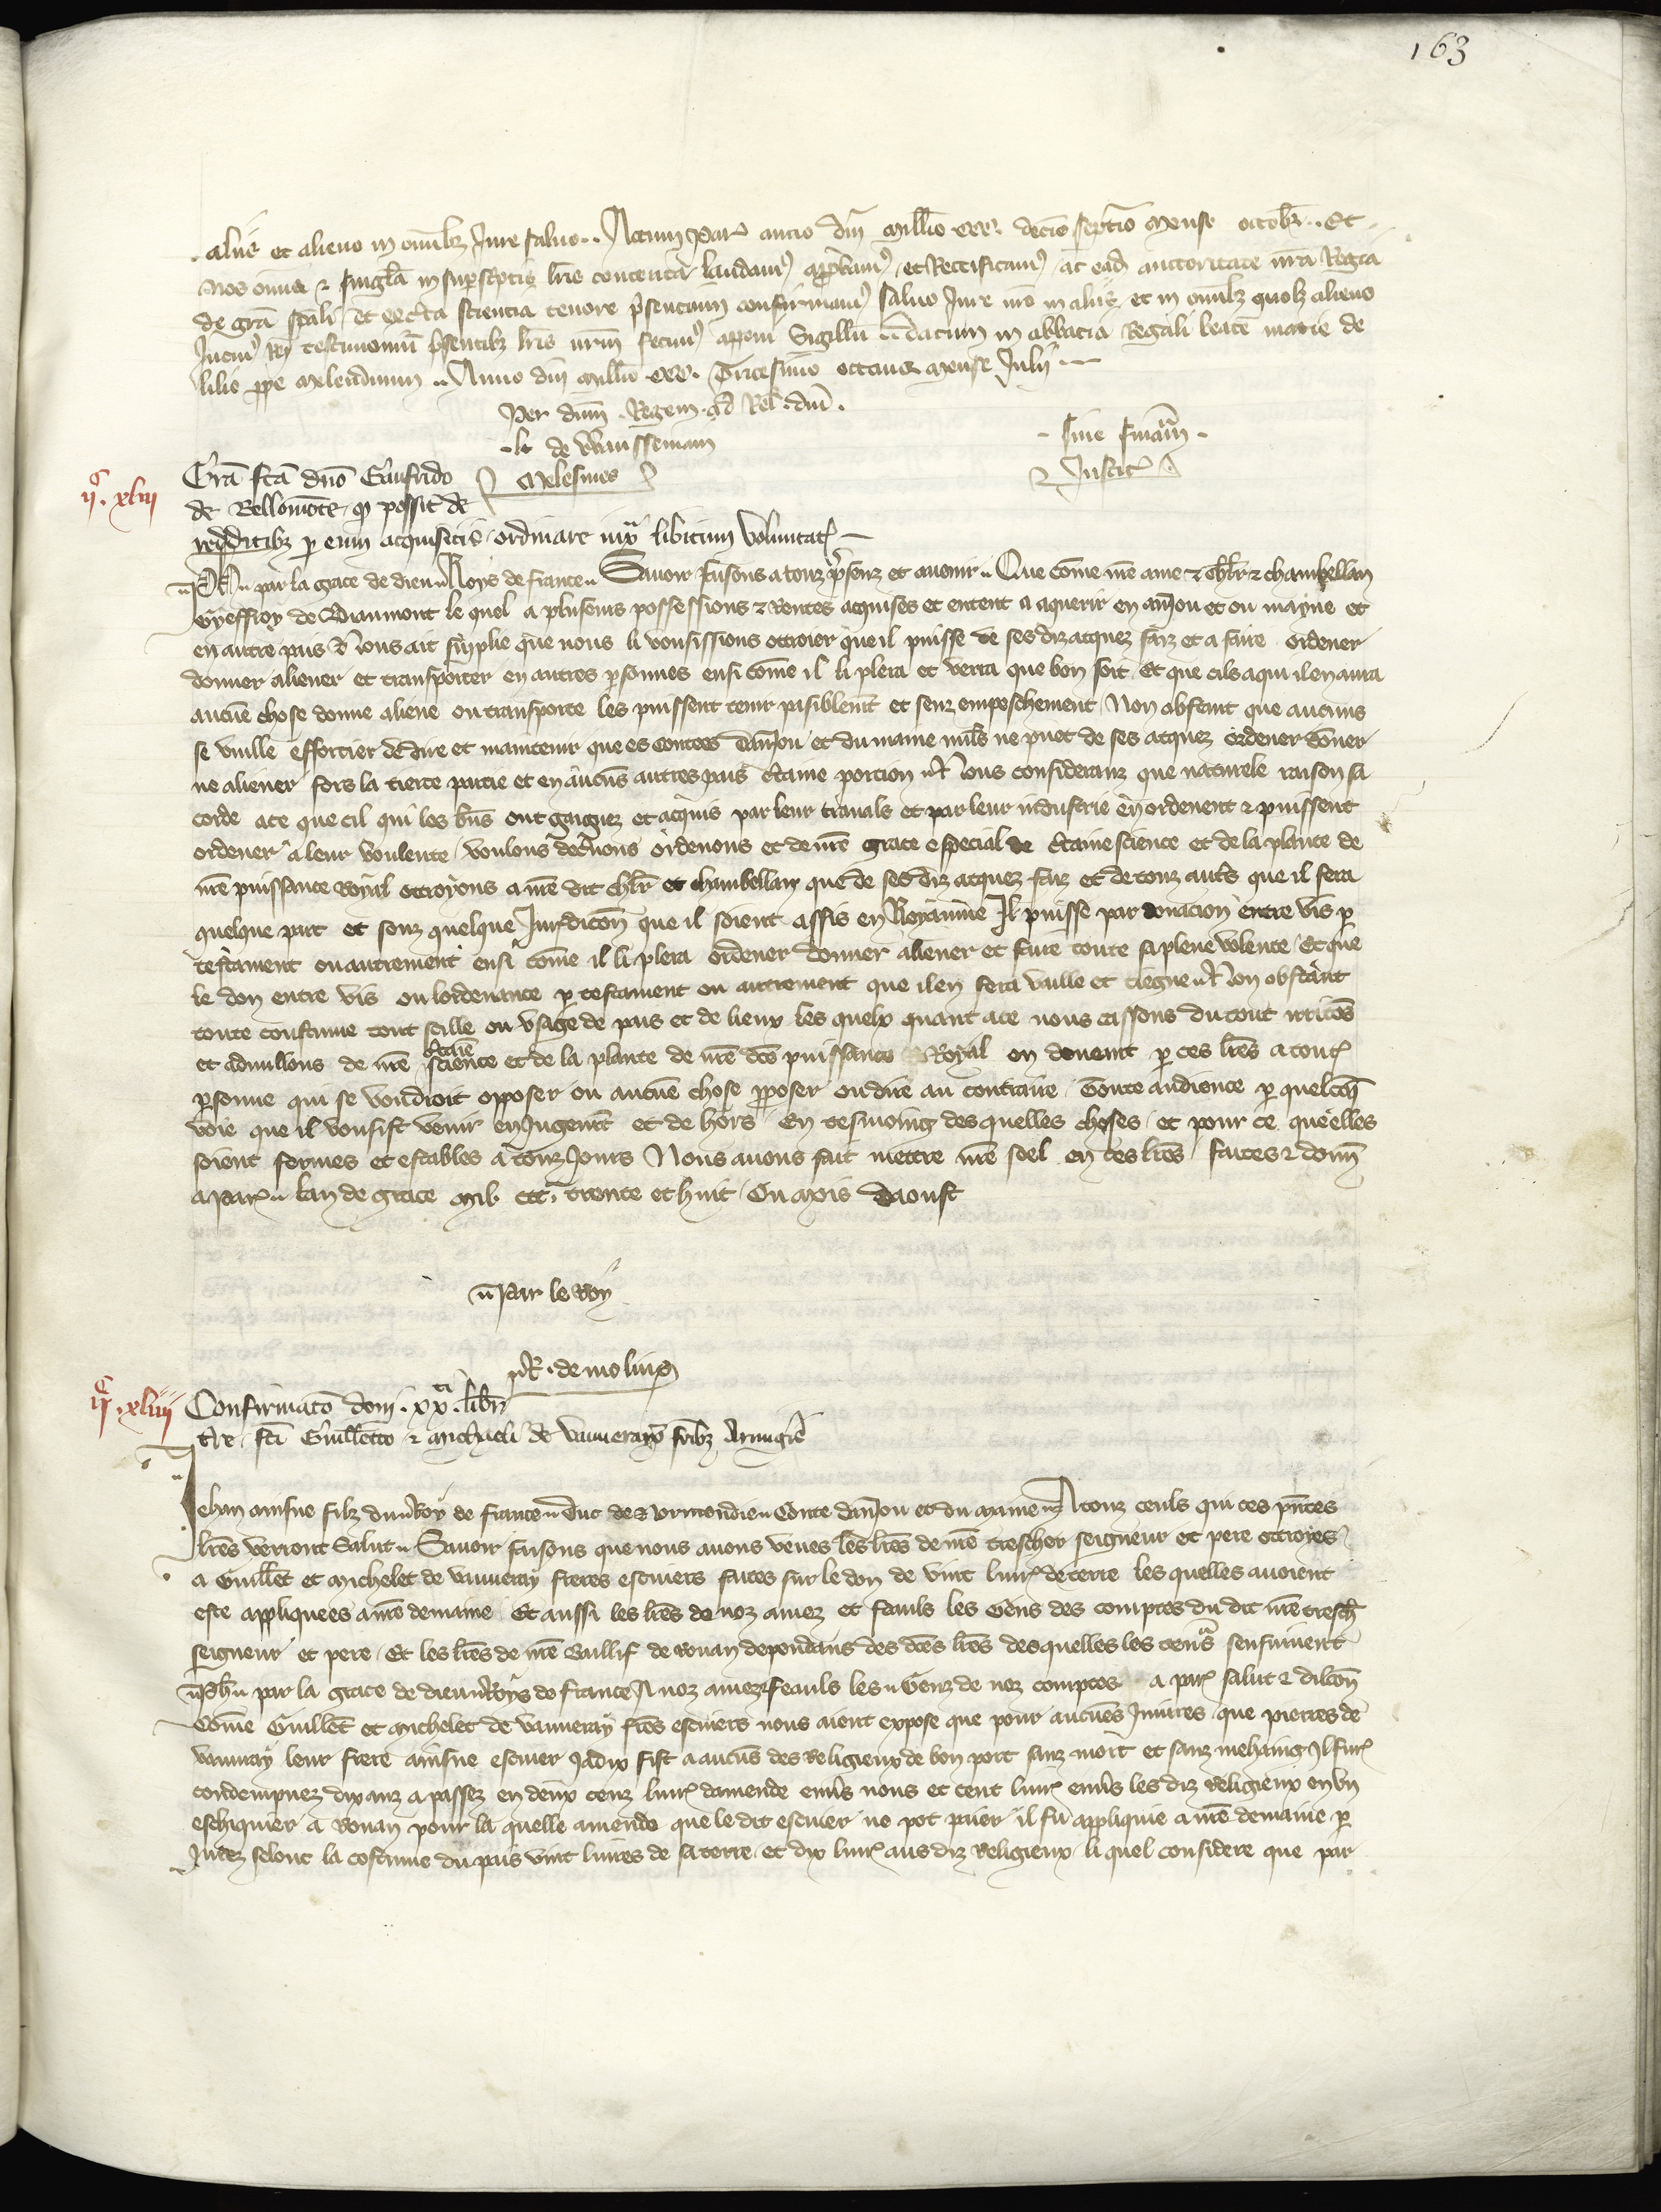 163
aliis et alieno in omnibz Jure saluo .. Actum Par anno dni millio ccc decio septio mense octobr .. Et
Nos omia & singla in suprscriptis lris contenta laudam approbam et Rectificam ac ead auctoritate nra Regia
de gra spali et ex certa sciencia tenore presencium confirmam saluo Jure nro in aliis et in omibz quolz alieno
Incui Rei testimoniu presentibz lris nrm fecim apponi Sigillu .. Datum in abbacia Regali beate marie de
lilio ppe meledunum .. Anno dni millio ccc Tricesimo octauo mense Julii
Per dnm Regem ad Rel dni
sine financia
& Justic
Melesmes
ii c xliii
Gra fca dno Gaufrido
de Bellomote q possit de
redditibz p eum acquisitis ordinare iuxa libitum voluntat
Ph par la grace de dieu Roys de france Sauoir faisons a touz presenz et auenir Que come nre ame & chlr & chambellan
Gyeffroy de Biaumont le quel a plusours possessions & Rentes acquises et entent a aquerir en aniou et ou mayne et
en autre pais Nous ait supplie que nous li vousissions ottroier que il puisse de ses diz acquez faiz et a faire ordener
donner aliener et transporter en autres psonnes ensi come il li plera et verra que bon soit Et que cils a qui il en aura
aucue chose donne aliene ou transporte les puissent tenir paisiblemt et senz empeschement Non obstant que aucuns
se vuille efforcier de dire et maintenir que es contees daniou et du maine nuls ne puet de ses acquez ordener doner
ne aliener fors la tierce partie et en aucus autres pais ctaine porcion Nous consideranz que naturele raison sa
corde a ce que cil qui les bns ont gaignez et acquis par leur trauals et par leur industrie en ordenent & puissent
ordener a leur voulente voulons decnons ordenons et de nre grace especial de ctaine science et de la plante de
nre puissance royal ottroyons a nre dit chlr et chambellan que de ses diz acquez faiz et de touz autrs que il fera
quelque part et souz quelque Juridicon que il soient assis en Royaume Il puisse par donacion entre vis p
testament ou autrement ensi come il li plera ordener donner aliener et faire toute sa plene volente Et que
le don entre vis ou lordenance p testament ou autrement que il en fera vaille et tiegne Non obstant
toute coustume tout stille ou vsage de pais et de lieux les quelx quant a ce nous cassons du tout irritos
et adnullons de nre ctaine science et de la plante de nre dce puissance Royal en deueant p ces lres a tout
psonne qui se voudroit opposer ou aucue chose pposer ou dire au contraire Toute audience p quelcoq
voie que il vousist venir en Jugemt et de hors En tesmoing des quelles choses et pour ce quelles
soient fermes et estables a touz Jours Nous auons fait mettre nre seel en ces lres faites & donn
a Par lan de grace mil ccc trente et huit Ou mois daoust
Par le Roy
R de molins
ii c xliiii
Confirmaco doni xx ti libr
tre fci Guillemto & Micheli de Vauueray fribz Armigis
Jehan ainsne filz du Roy de france Duc de Normendie Conte daniou et du maine A touz ceuls qui ces pntes
lres verront Salut Sauoir faisons que nous auons veues les lres de nre treschier seigneur et pere ottroyes
a Guillet et Michelet de vauueray freres escuiers faites sur le don de vint liur de terre les quelles auoient
este appliquees a nre demaine Et aussi les lres de noz amez et feauls les Gens des comptes du dit nre tresch
seigneur et pere Et les lres de nre Baillif de Rouan dependans des dces lres des quelles les teneurs sensuiuent
Ph par la grace de dieu Roys de france A noz amez & feauls les Genz de noz comptes a Par salut & dilcon
Come Guillet et Michelet de vauueray fres escuiers nous aient expose que pour aucues Iniures que pierres de
vauuray leur frere ainsne escuier Jadix fist a aucus des Religieux de bon port sanz mort et sanz mehaing Il fur
condempnez dix anz a passez en deux cenz liur damende enuers nous et cent liur enuers les diz Religieux en vn
eschiquier a Rouan pour la quelle amende que le dit escuier ne pot paier il fu applique a nre demaine p
Juree selonc la costume du pais vint liures de sa terre et dix liur aus diz Religieux li quel considere que par